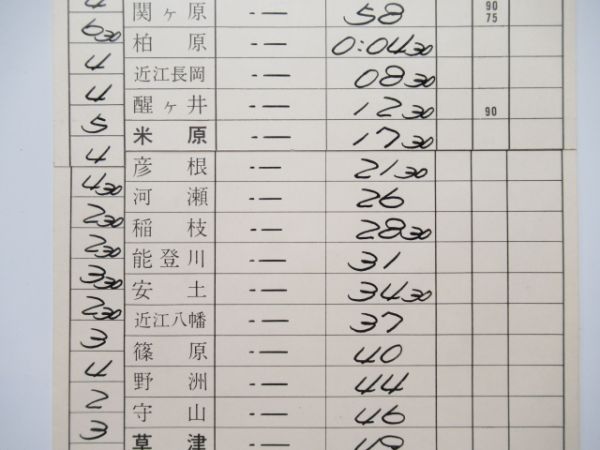 4 関ヶ原 ·— 58 90 75
6 30 柏原 ·— 0:04 30
4 近江長岡 ·— 08 30
4 醒ヶ井 ·— 12 30 90
5 米原 ·— 17 30
4 彦根 ·— 21 30
4 30 河瀬 ·— 26
2 30 稲枝 ·— 28 30
2 30 能登川 ·— 31
3 30 安土 ·— 34 30
2 30 近江八幡 ·— 37
3 篠原 ·— 40
4 野洲 ·— 44
2 守山 ·— 46
3 草津 ·—